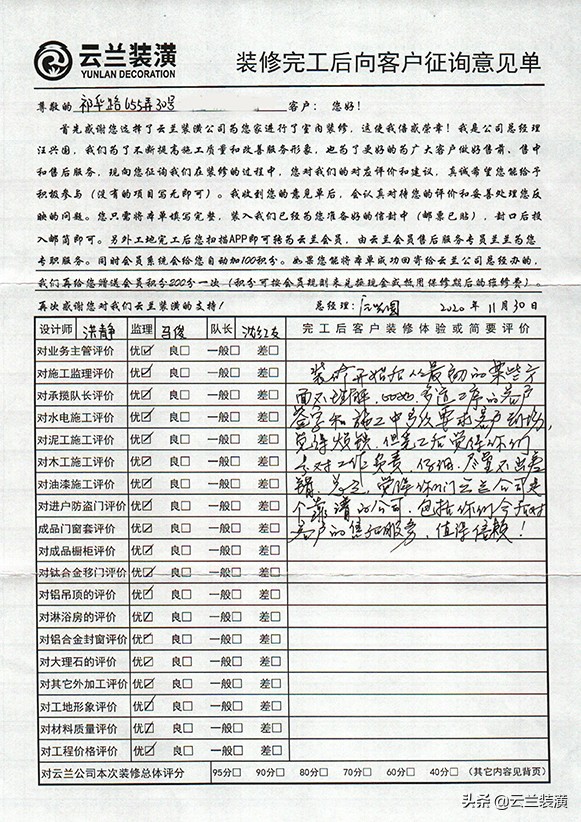 云兰装潢
YUNLAN DECORATION
装修完工后向客户征询意见单
尊敬的 祁华路655弄30号 客户： 您好！
首先感谢您选择了云兰装潢公司为您家进行了室内装修，这使我倍感荣幸！我是公司总经理
汪兴国，我们为了不断提高施工质量和改善服务形象，也为了更好的为广大客户做好售前、售中
和售后服务，现向您征询我们在装修的过程中，您对我们的对应评价和建议，真诚希望您能给予
积极参与（没有的项目写无即可）。我收到您的意见单后，会认真对待您的评价和妥善处理您反
映的问题。您只需将本单填写完整，装入我们已经为您准备好的信封中（邮票已贴），封口后投
入邮筒即可。另外工地完工后您扫描APP即可转为云兰会员，由云兰会员售后服务专员兰兰为您
专职服务。同时会员系统会给您自动加100积分。如果您能将本单成功回寄给云兰公司总经办的，
我们再给您赠送会员积分200分一次（积分可按会员规则来兑换现金或抵用保修期后的维修费）。
再次感谢您对我们云兰装潢的支持！ 总经理： 2020 年 11 月 30 日
设计师 洪静 监理 马俊 队长 沈红友 完工后客户装修体验或简要评价
对业务主管评价 优☑ 良□ 一般□ 差□
对施工监理评价 优☑ 良□ 一般□ 差□ 装修开始后从最初的某些方
对承揽队长评价 优☑ 良□ 一般□ 差□ 面不理解，多道工序的客户
对水电施工评价 优☑ 良□ 一般□ 差□ 签字和施工中多次要求客户到场，
对泥工施工评价 优☑ 良□ 一般□ 差□ 觉得烦锁，但完工后觉得你们
对木工施工评价 优☑ 良□ 一般□ 差□ 对工作负责，仔细，尽量不出差
对油漆施工评价 优☑ 良□ 一般□ 差□ 错，总之，觉得你们云兰公司是
对进户防盗门评价 优☑ 良□ 一般□ 差□ 个靠谱的公司，包括你们今后对
成品门窗套评价 优☑ 良□ 一般□ 差□ 客户的售后服务，值得信赖！
对成品橱柜评价 优☑ 良□ 一般□ 差□
对钛合金移门评价 优☑ 良□ 一般□ 差□
对铝吊顶的评价 优☑ 良□ 一般□ 差□
对淋浴房的评价 优☑ 良□ 一般□ 差□
对铝合金封窗评价 优☑ 良□ 一般□ 差□
对大理石的评价 优☑ 良□ 一般□ 差□
对其它外加工评价 优☑ 良□ 一般□ 差□
对工地形象评价 优☑ 良□ 一般□ 差□
对材料质量评价 优☑ 良□ 一般□ 差□
对工程价格评价 优☑ 良□ 一般□ 差□
对云兰公司本次装修总体评分 95分□ 90分□ 80分□ 70分□ 60分□ 40分□ （其它内容见背页）
头条 @云兰装潢